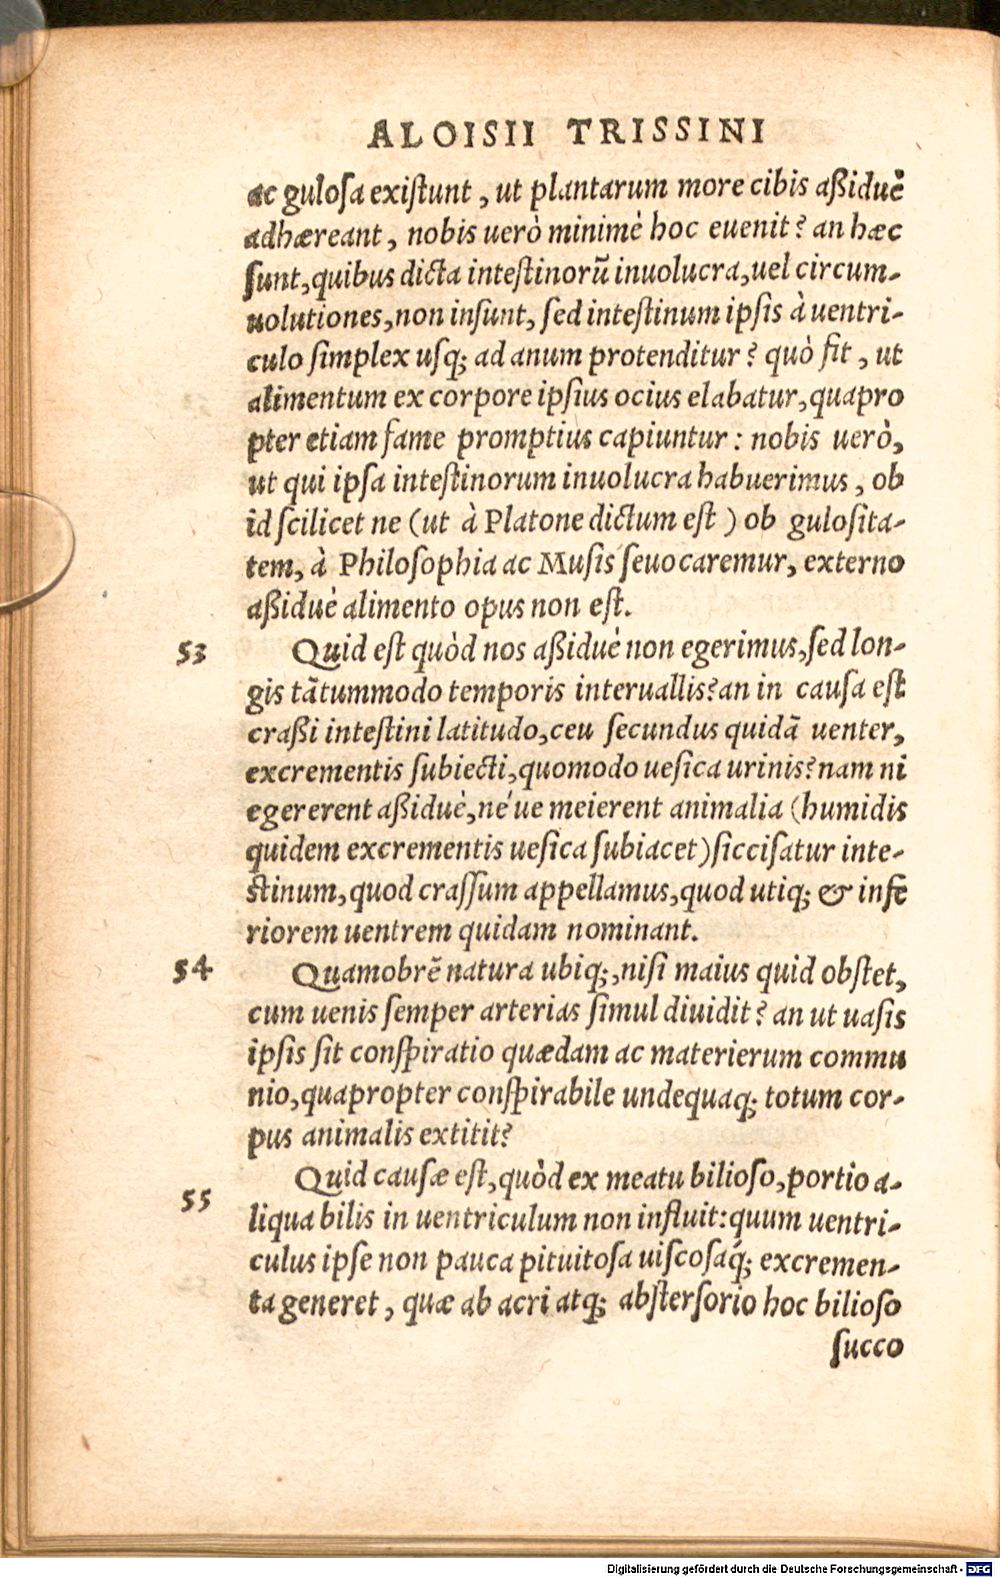 ALOISII TRISSINI
ac guloſa exiſtunt, ut plantarum more cibis aßiduè
adhæreant, nobis uerò minimè hoc euenit? an hæc
ſunt, quibus dicta inteſtinorũ inuolucra, uel circum-
uolutiones, non inſunt, ſed inteſtinum ipſis à uentri-
culo ſimplex uſq; ad anum protenditur? quò fit, ut
alimentum ex corpore ipſius ocius elabatur, quapro
pter etiam fame promptius capiuntur: nobis uerò,
ut qui ipſa inteſtinorum inuolucra habuerimus, ob
id ſcilicet ne (ut à Platone dictum eſt) ob guloſita-
tem, à Philoſophia ac Muſis ſeuocaremur, externo
aßiduè alimento opus non eſt.
53 Quid eſt quòd nos aßiduè non egerimus, ſed lon-
gis tãtummodo temporis interuallis? an in cauſa eſt
craßi inteſtini latitudo, ceu ſecundus quidã uenter,
excrementis ſubiecti, quomodo ueſica urinis? nam ni
egererent aßiduè, né ue meierent animalia (humidis
quidem excrementis ueſica ſubiacet) ſiccis atur inte-
ſtinum, quod craſſum appellamus, quod utiq; & infe
riorem uentrem quidam nominant.
54 Quamobrẽ natura ubiq;, niſi maius quid obſtet,
cum uenis ſemper arterias ſimul diuidit? an ut uaſis
ipſis ſit conſpiratio quædam ac materierum commu
nio, quapropter conſpirabile undequaq; totum cor-
pus animalis extitit?
55 Quid cauſæ eſt, quòd ex meatu bilioſo, portio a-
liqua bilis in uentriculum non influit: quum uentri-
culus ipſe non pauca pituitoſa uiſcoſaq́; excremen-
ta generet, quæ ab acri atq; abſterſorio hoc bilioſo
ſucco
Digitalisierung gefördert durch die Deutsche Forschungsgemeinschaft - DFG